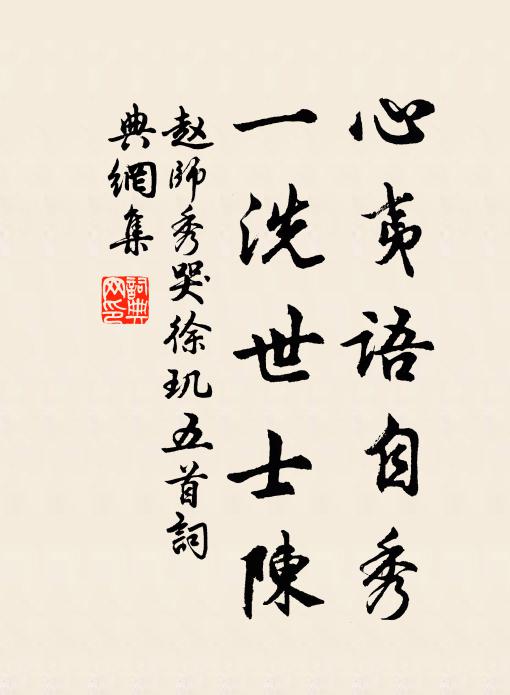 心夷語自秀
一洗世士陳
赵師秀哭徐玑五首詞
典網集
詞典网印